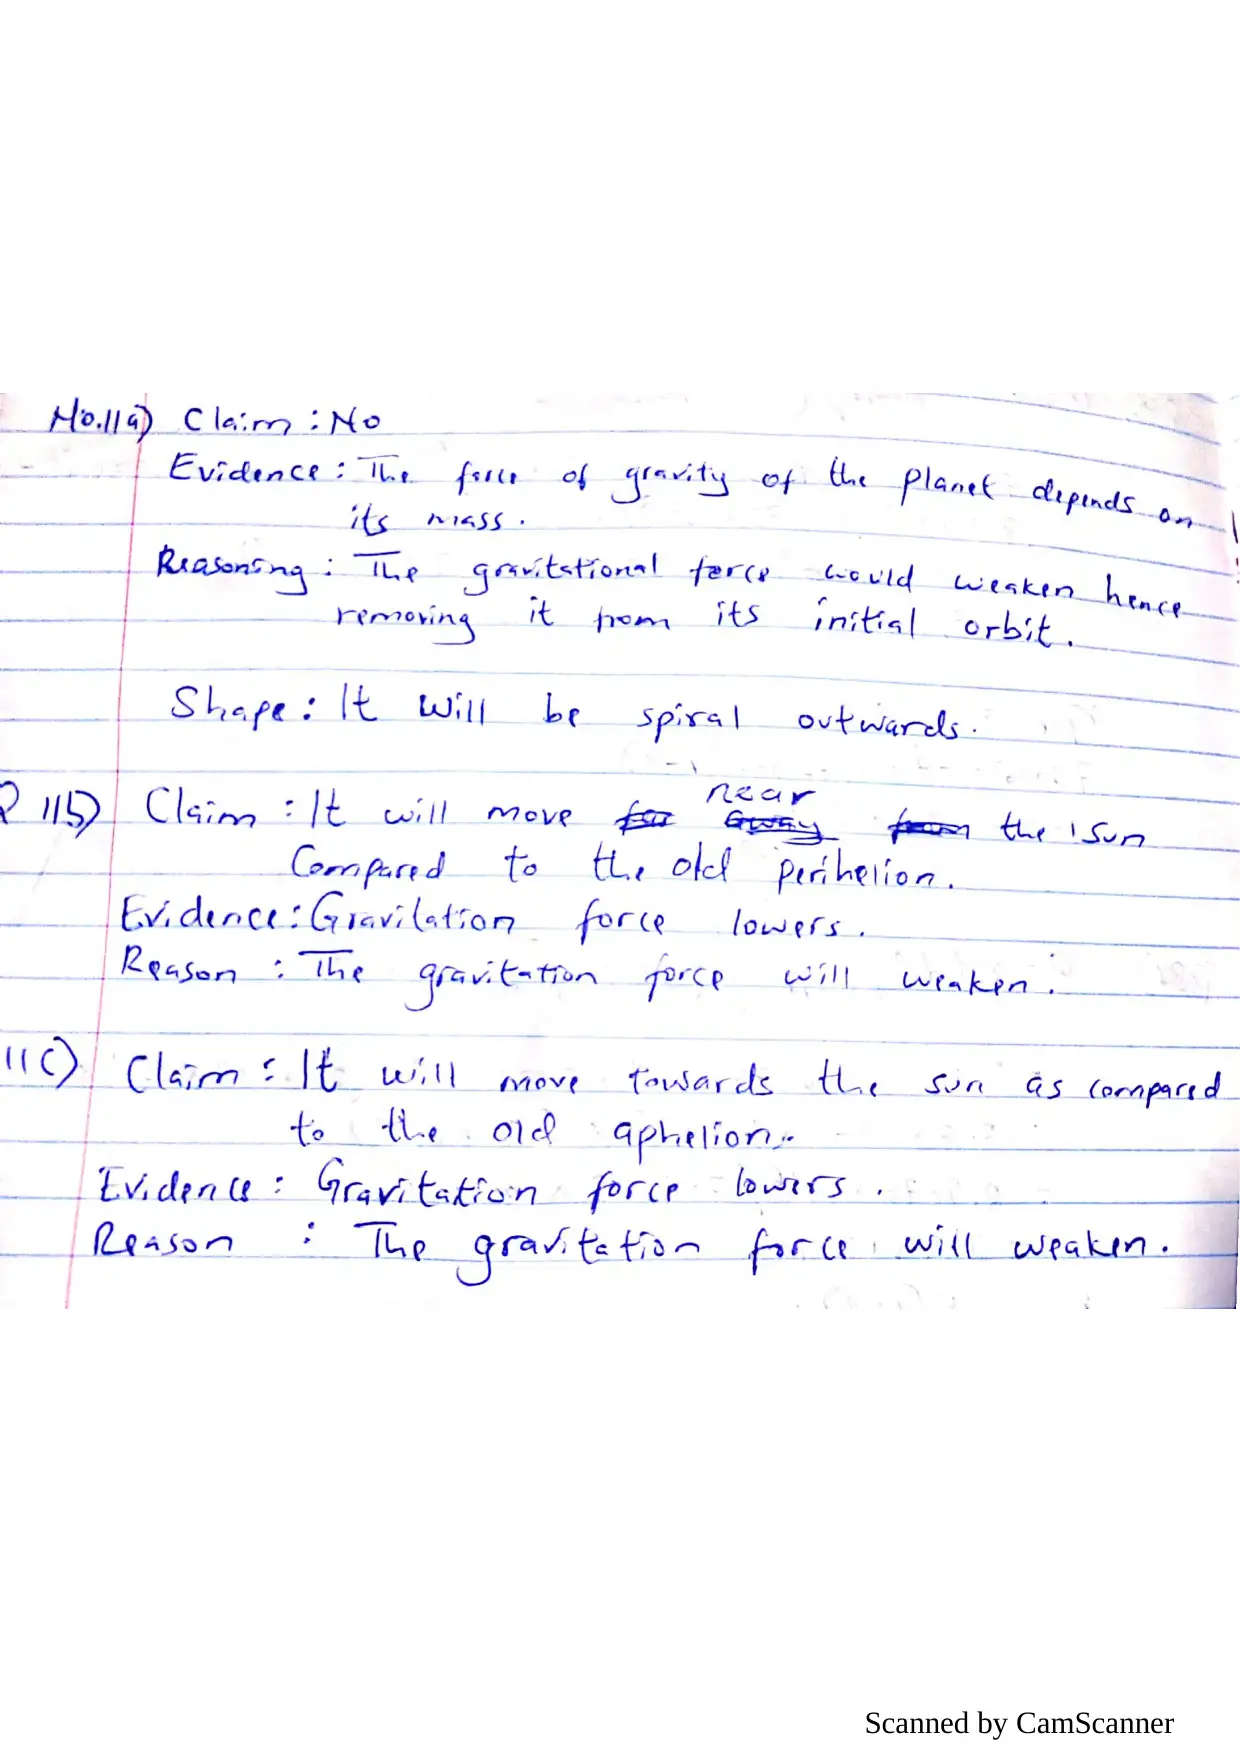 No.11a) Claim : No
Evidence : The force of gravity of the planet depends on
its mass.
Reasoning : The gravitational force would weaken hence
removing it from its initial orbit.
Shape : It will be spiral outwards.
11b) Claim : It will move far near away from the sun
Compared to the old perihelion.
Evidence : Gravitation force lowers.
Reason : The gravitation force will weaken.
11c) Claim : It will move towards the sun as compared
to the old aphelion.
Evidence : Gravitation force lowers.
Reason : The gravitation force will weaken.
Scanned by CamScanner